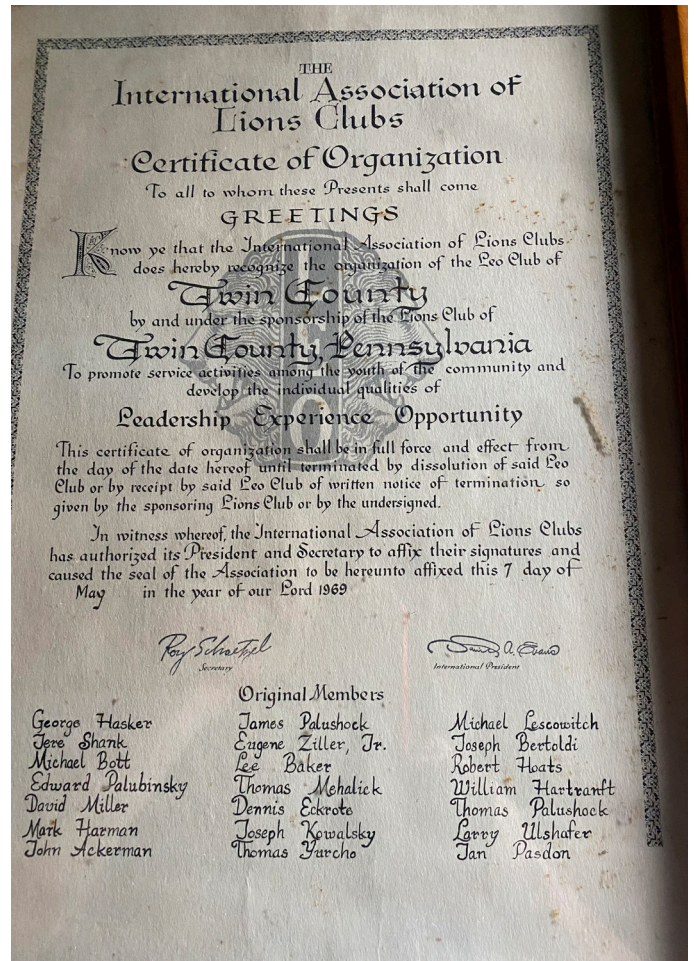 THE
International Association of
Lions Clubs
Certificate of Organization
To all to whom these Presents shall come
GREETINGS
Know ye that the International Association of Lions Clubs
does hereby recognize the organization of the Leo Club of
Twin County
by and under the sponsorship of the Lions Club of
Twin County, Pennsylvania
To promote service activities among the youth of the community and
develop the individual qualities of
Leadership Experience Opportunity
This certificate of organization shall be in full force and effect from
the day of the date hereof until terminated by dissolution of said Leo
Club or by receipt by said Leo Club of written notice of termination so
given by the sponsoring Lions Club or by the undersigned.
In witness whereof, the International Association of Lions Clubs
has authorized its President and Secretary to affix their signatures and
caused the seal of the Association to be hereunto affixed this 7 day of
May in the year of our Lord 1969
Roy Schaetzel
Secretary
David A. Evans
International President
Original Members
George Hasker James Palushock Michael Lescowitch
Jere Shank Eugene Ziller, Jr. Joseph Bertoldi
Michael Bott Lee Baker Robert Hoats
Edward Palubinsky Thomas Mehalick William Hartranft
David Miller Dennis Eckrote Thomas Palushock
Mark Harman Joseph Kowalsky Larry Ulshafer
John Ackerman Thomas Yurcho Jan Pasdon